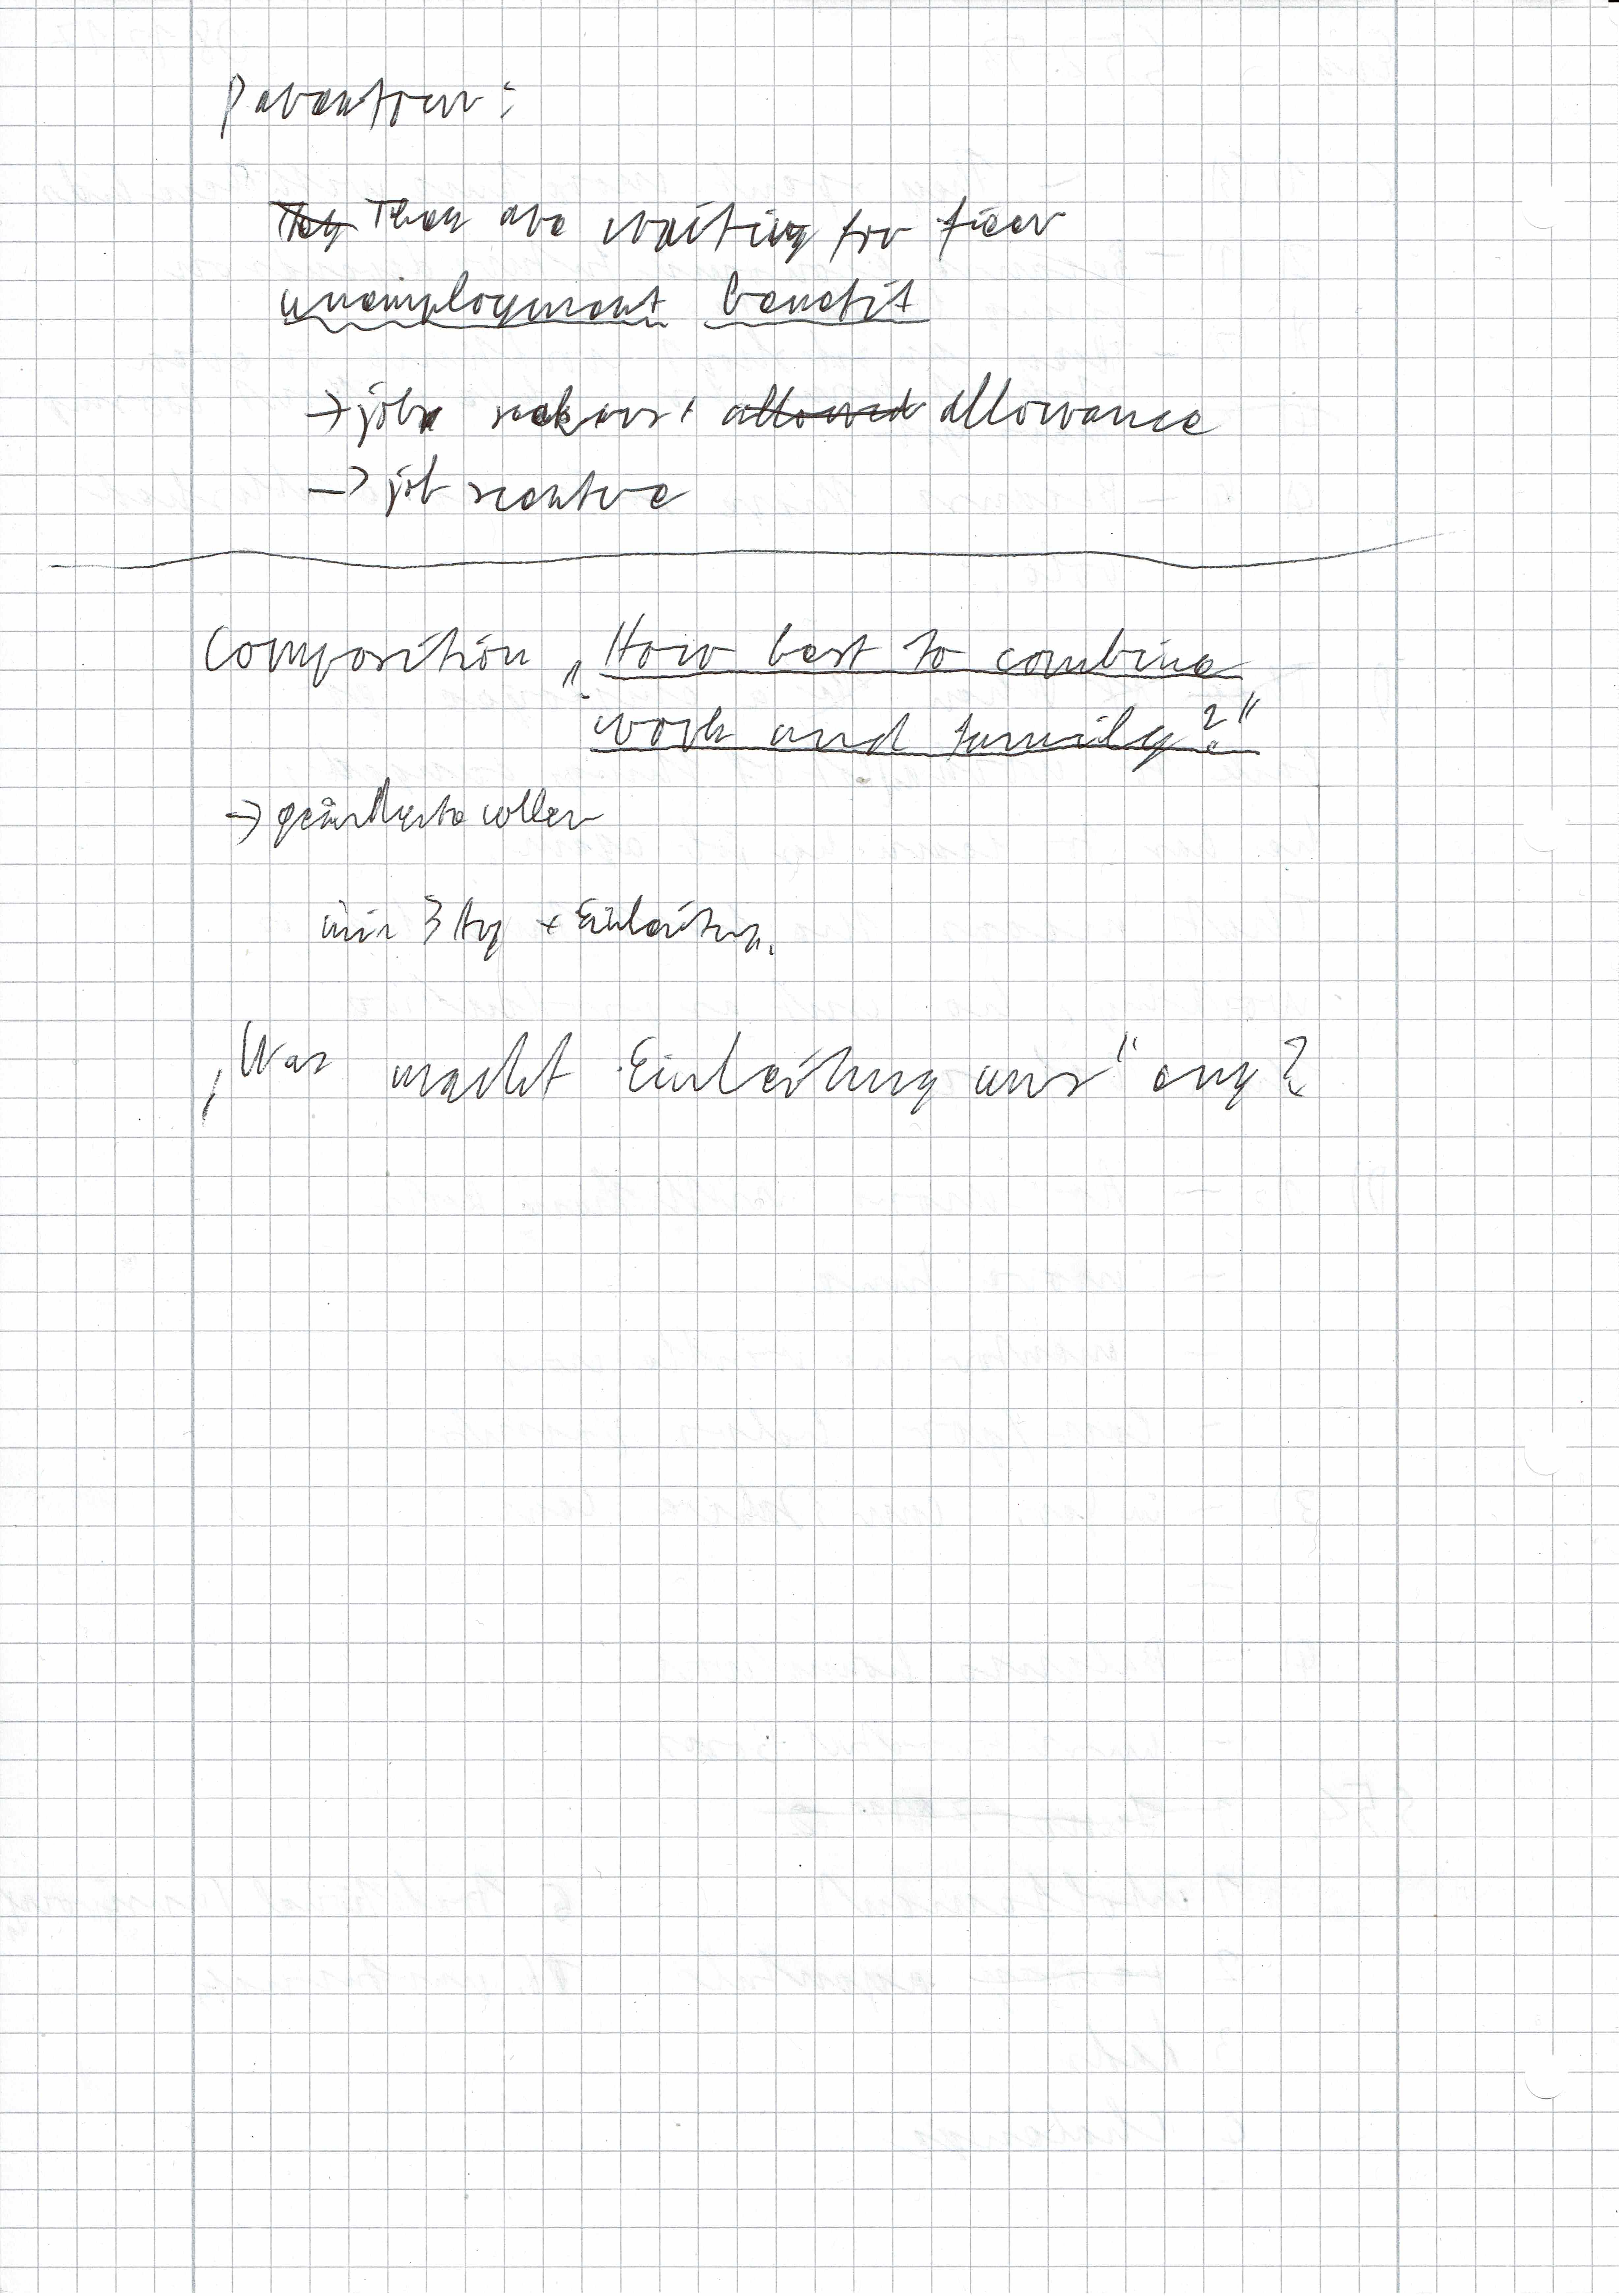 They are waiting for their
unemployment benefit
→ job seekers' allowance
→ job centre
Composition „How best to combine
work and family?“
→ geänderte Rollen
min 3 Arg + Einleitung.
„Was macht Einleitung aus“ eng?